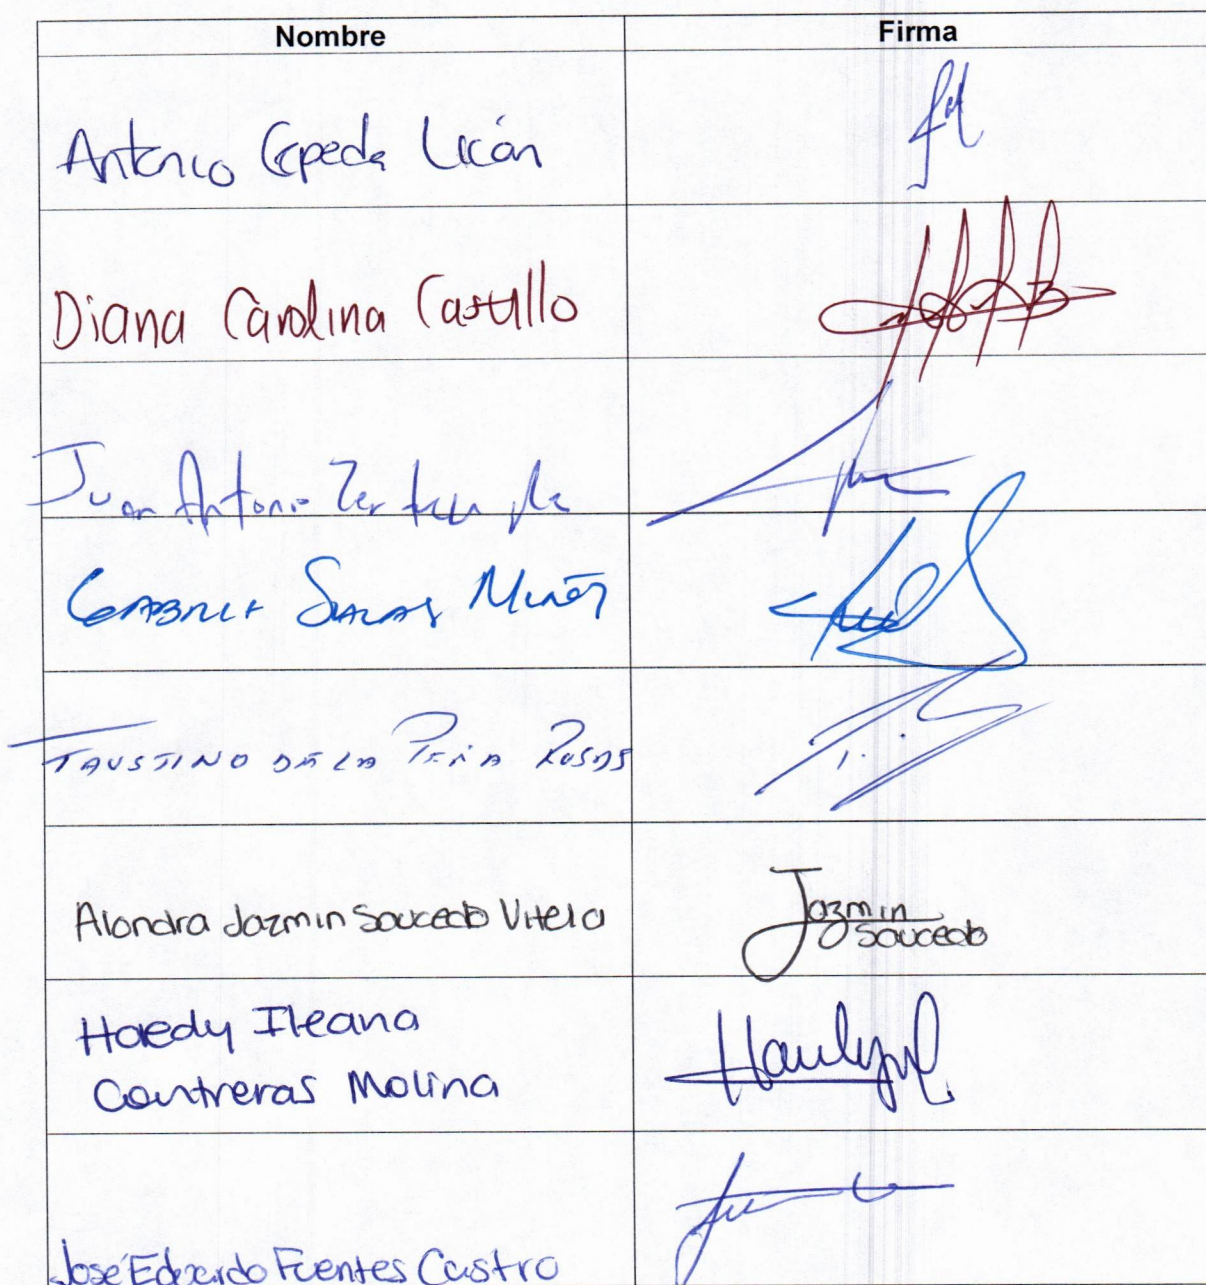 Nombre Firma
Antonio Cepeda Licón
Diana Carolina Castillo
Juan Antonio
Gabriel Salas Muñoz
FAUSTINO DE LA PEÑA ROSAS
Alondra Jazmin Saucedo Vitela Jazmin
Saucedo
Haedy Ileana
Contreras Molina
José Eduardo Fuentes Castro